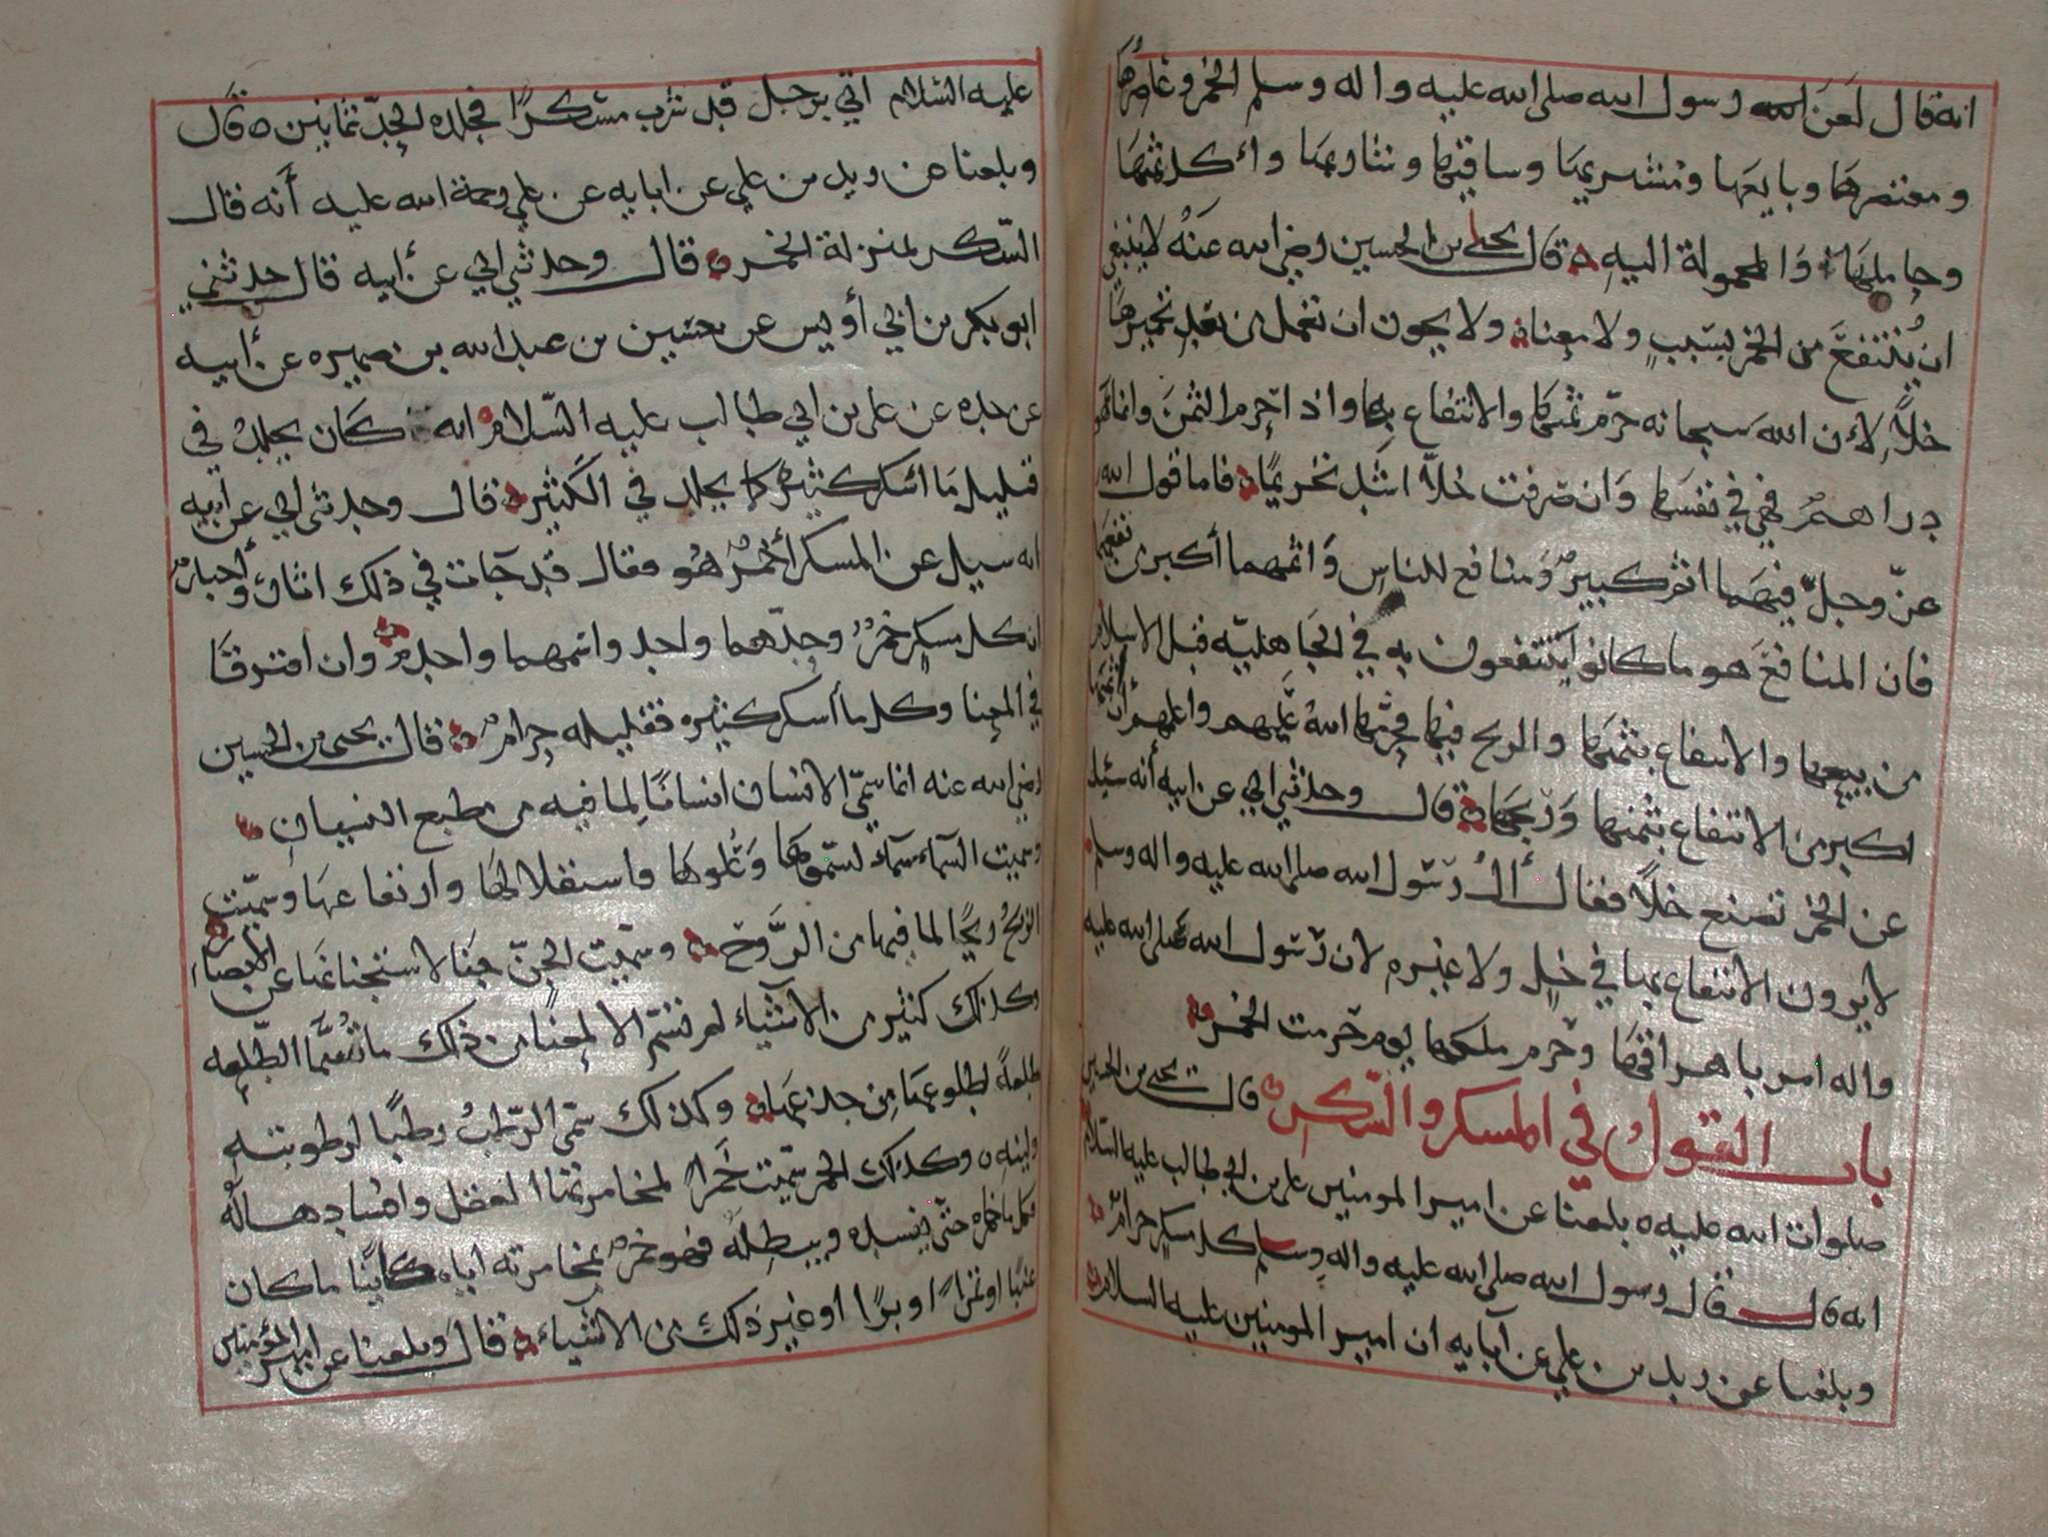 انه قال لعن الله رسول الله صلى الله عليه واله وسلم الخمر وعاصرها
ومعتصرها وبايعها ومشتريها وساقيها وشاربها واكل ثمنها
وحاملها والمحمولة اليه قال يحيى بن الحسين رضي الله عنه لا ينبغي
ان ينتفع من الخمر بسبب ولا معنا ولا يجوز ان تعمل من بعد تخميرها
خلا لان الله سبحانه حرم ثمنها والانتفاع بها واذا حرم الثمن وانما هو
دراهم فهي في نفسها وان صرفت خلا اشد تحريما فاما قول الله
عز وجل فيهما اثم كبير ومنافع للناس واثمهما أكبر من نفعهما
فان المنافع هو ما كانوا ينتفعون به في الجاهلية قبل الاسلام
من بيعها والانتفاع بثمنها والربح فيها فحرمها الله عليهم واعلمهم أن اثمها
اكبر من الانتفاع بثمنها وربحها قال وحدثني ابي عن ابيه أنه سئل
عن الخمر تصنع خلا فقال أال رسول الله صلى الله عليه واله وسلم
لا يرون الانتفاع بها في خل ولا غيره لان رسول الله صلى الله عليه
واله امر باهراقها وحرم ملكها يوم حرمت الخمر
باب القول في المسكر والسكر قال يحيى بن الحسين
صلوات الله عليه بلغنا عن امير المومنين علي بن ابي طالب عليه السلام
انه قال قال رسول الله صلى الله عليه واله وسلم كل مسكر حرام
وبلغنا عن زيد بن علي عن آبايه ان امير المومنين عليه السلام
عليه السلام اتي برجل قد شرب مسكرا فجلده الحد ثمانين قال
وبلغنا عن زيد بن علي عن ابايه عن علي رحمة الله عليه أنه قال
السكر بمنزلة الخمر قال وحدثني ابي عن أبيه قال حدثني
ابو بكر بن ابي أويس عن حسين بن عبد الله بن ضميره عن أبيه
عن جده عن علي بن ابي طالب عليه السلام انه كان يجلد في
قليل ما اسكر كثيره كما يجلد في الكثير قال وحدثني ابي عن أبيه
انه سيل عن المسكر أخمر هو فقال قد جات في ذلك اثار وأخبار
ان كل مسكر خمر وحدهما واحد واثمهما واحد وان افترقا
في المعنا وكل ما أسكر كثيره فقليله حرام قال يحيى بن الحسين
رضي الله عنه انما سمي الانسان انسانا لما فيه من طبع النسيان
وسميت السماء سماء لسموها وعلوها واستقلالها وارتفاعها وسميت
الريح ريحا لما فيها من الروح وسميت الجن جنا لاستجنانها عن الابصار
وكذلك كثير من الاشياء لم تسم الا لمعنا من ذلك ما تسما الطلعه
طلعة لطلوعها من جذعها وكذلك سمي الرطب رطبا لرطوبته
ولينه وكذلك الخمر سميت خمرا لمخامرتها العقل وافسادها له
فكل ما خامره حتى يفسده ويبطله فهو خمر بمخامرته اياه كاينا ما كان
عنبا او تمرا او برا او غير ذلك من الاشياء قال وبلغنا عن امير المؤمنين